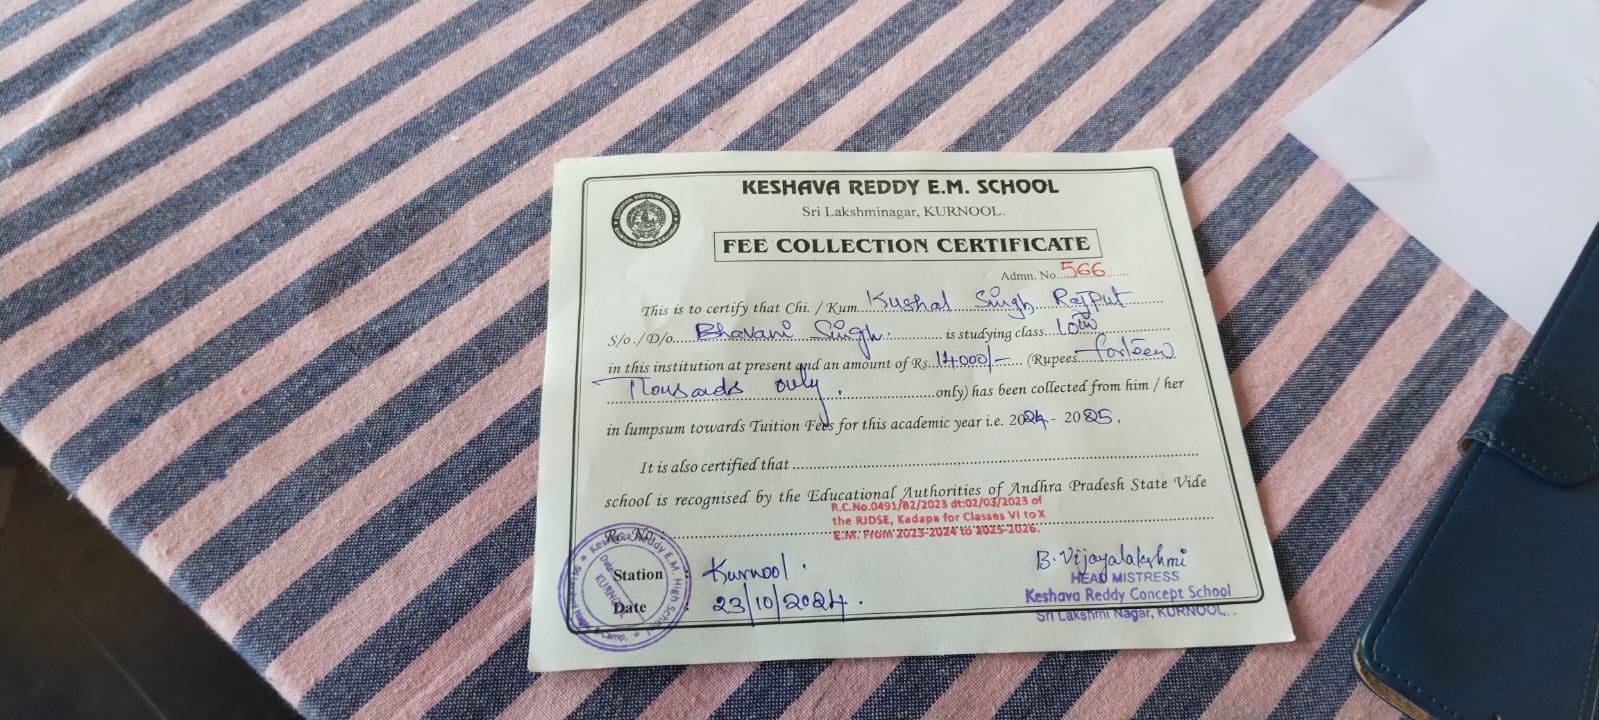 KESHAVA REDDY E.M. SCHOOL
Sri Lakshminagar, KURNOOL.
FEE COLLECTION CERTIFICATE
Admn. No. 566
This is to certify that Chi. / Kum. Kushal Singh Rajput
S/o./D/o. Bhavani Singh. is studying class. 10th
in this institution at present and an amount of Rs. 14000/- (Rupees forteen
Thousands only. only) has been collected from him / her
in lumpsum towards Tuition Fees for this academic year i.e. 2024 - 2025.
It is also certified that
school is recognised by the Educational Authorities of Andhra Pradesh State Vide
R.C.No.0491/B2/2023 dt:02/03/2023 of
the RJDSE, Kadapa for Classes VI to X
E.M. From 2023-2024 to 2025-2026.
Rc. No.
Station Kurnool.
Date : 23/10/2024.
B. Vijayalakshmi
HEAD MISTRESS
Keshava Reddy Concept School
Sri Lakshmi Nagar, KURNOOL.
Keshava Reddy E.M. High School
KURNOOL